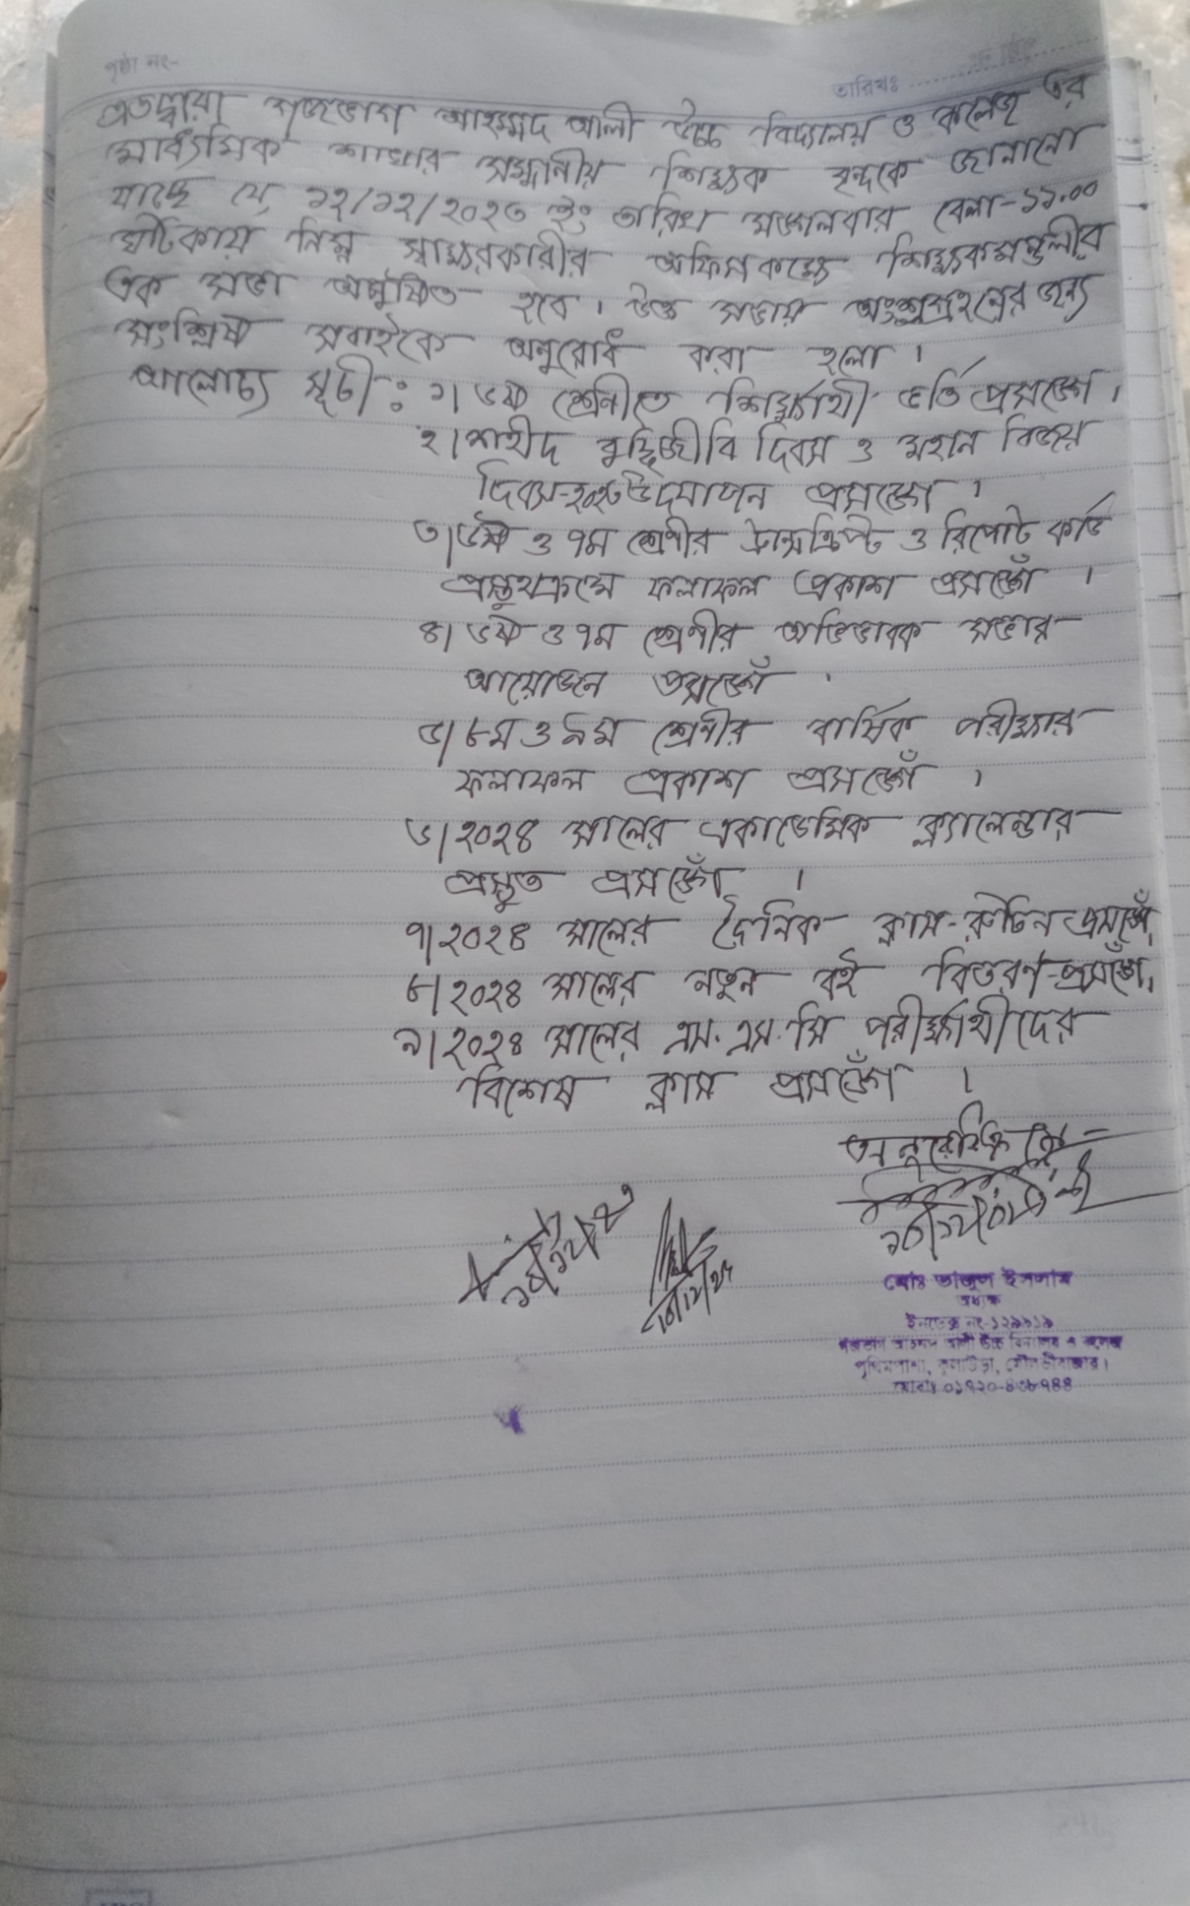 পৃষ্ঠা নং-
তারিখঃ
এতদ্বারা গজভাগ আহম্মদ আলী উচ্চ বিদ্যালয় ও কলেজ এর
মাধ্যমিক শাখার সম্মানীয় শিক্ষক বৃন্দকে জানানো
যাচ্ছে যে, ১২/১২/২০২৩ ইং তারিখ মঙ্গলবার বেলা-১১.০০
ঘটিকায় নিম্ন স্বাক্ষরকারীর অফিস কক্ষে শিক্ষকমন্ডলীর
এক সভা অনুষ্ঠিত হবে। উক্ত সভায় অংশগ্রহনের জন্য
সংশ্লিষ্ট সবাইকে অনুরোধ করা হলো।
আলোচ্য সূচী: ১। ৬ষ্ঠ শ্রেনীতে শিক্ষার্থী ভর্তি প্রসঙ্গে।
২। শহীদ বুদ্ধিজীবি দিবস ও মহান বিজয়
দিবস-২০২৩ উদযাপন প্রসঙ্গে।
৩। ৬ষ্ঠ ও ৭ম শ্রেণীর ট্রান্সক্রিপ্ট ও রিপোট কার্ড
প্রস্তুতক্রমে ফলাফল প্রকাশ প্রসঙ্গে।
৪। ৬ষ্ঠ ও ৭ম শ্রেণীর অভিভাবক সভার
আয়োজন প্রসঙ্গে।
৫। ৮ম ও ৯ম শ্রেণীর বার্ষিক পরীক্ষার
ফলাফল প্রকাশ প্রসঙ্গে।
৬। ২০২৪ সালের একাডেমিক ক্যালেন্ডার
প্রস্তুত প্রসঙ্গে।
৭। ২০২৪ সালের দৈনিক ক্লাস-রুটিন প্রসঙ্গে,
৮। ২০২৪ সালের নতুন বই বিতরণ-প্রসঙ্গে,
৯। ২০২৪ সালের এস.এস.সি পরীক্ষার্থীদের
বিশেষ ক্লাস প্রসঙ্গে।
অনুরোধক্রমে-
মোঃ তাজুল ইসলাম
অধ্যক্ষ
ইনডেক্স নং-
গজভাগ আহমদ আলী উচ্চ বিদ্যালয় ও কলেজ
পৃথিমপাশা, কুলাউড়া, মৌলভীবাজার।